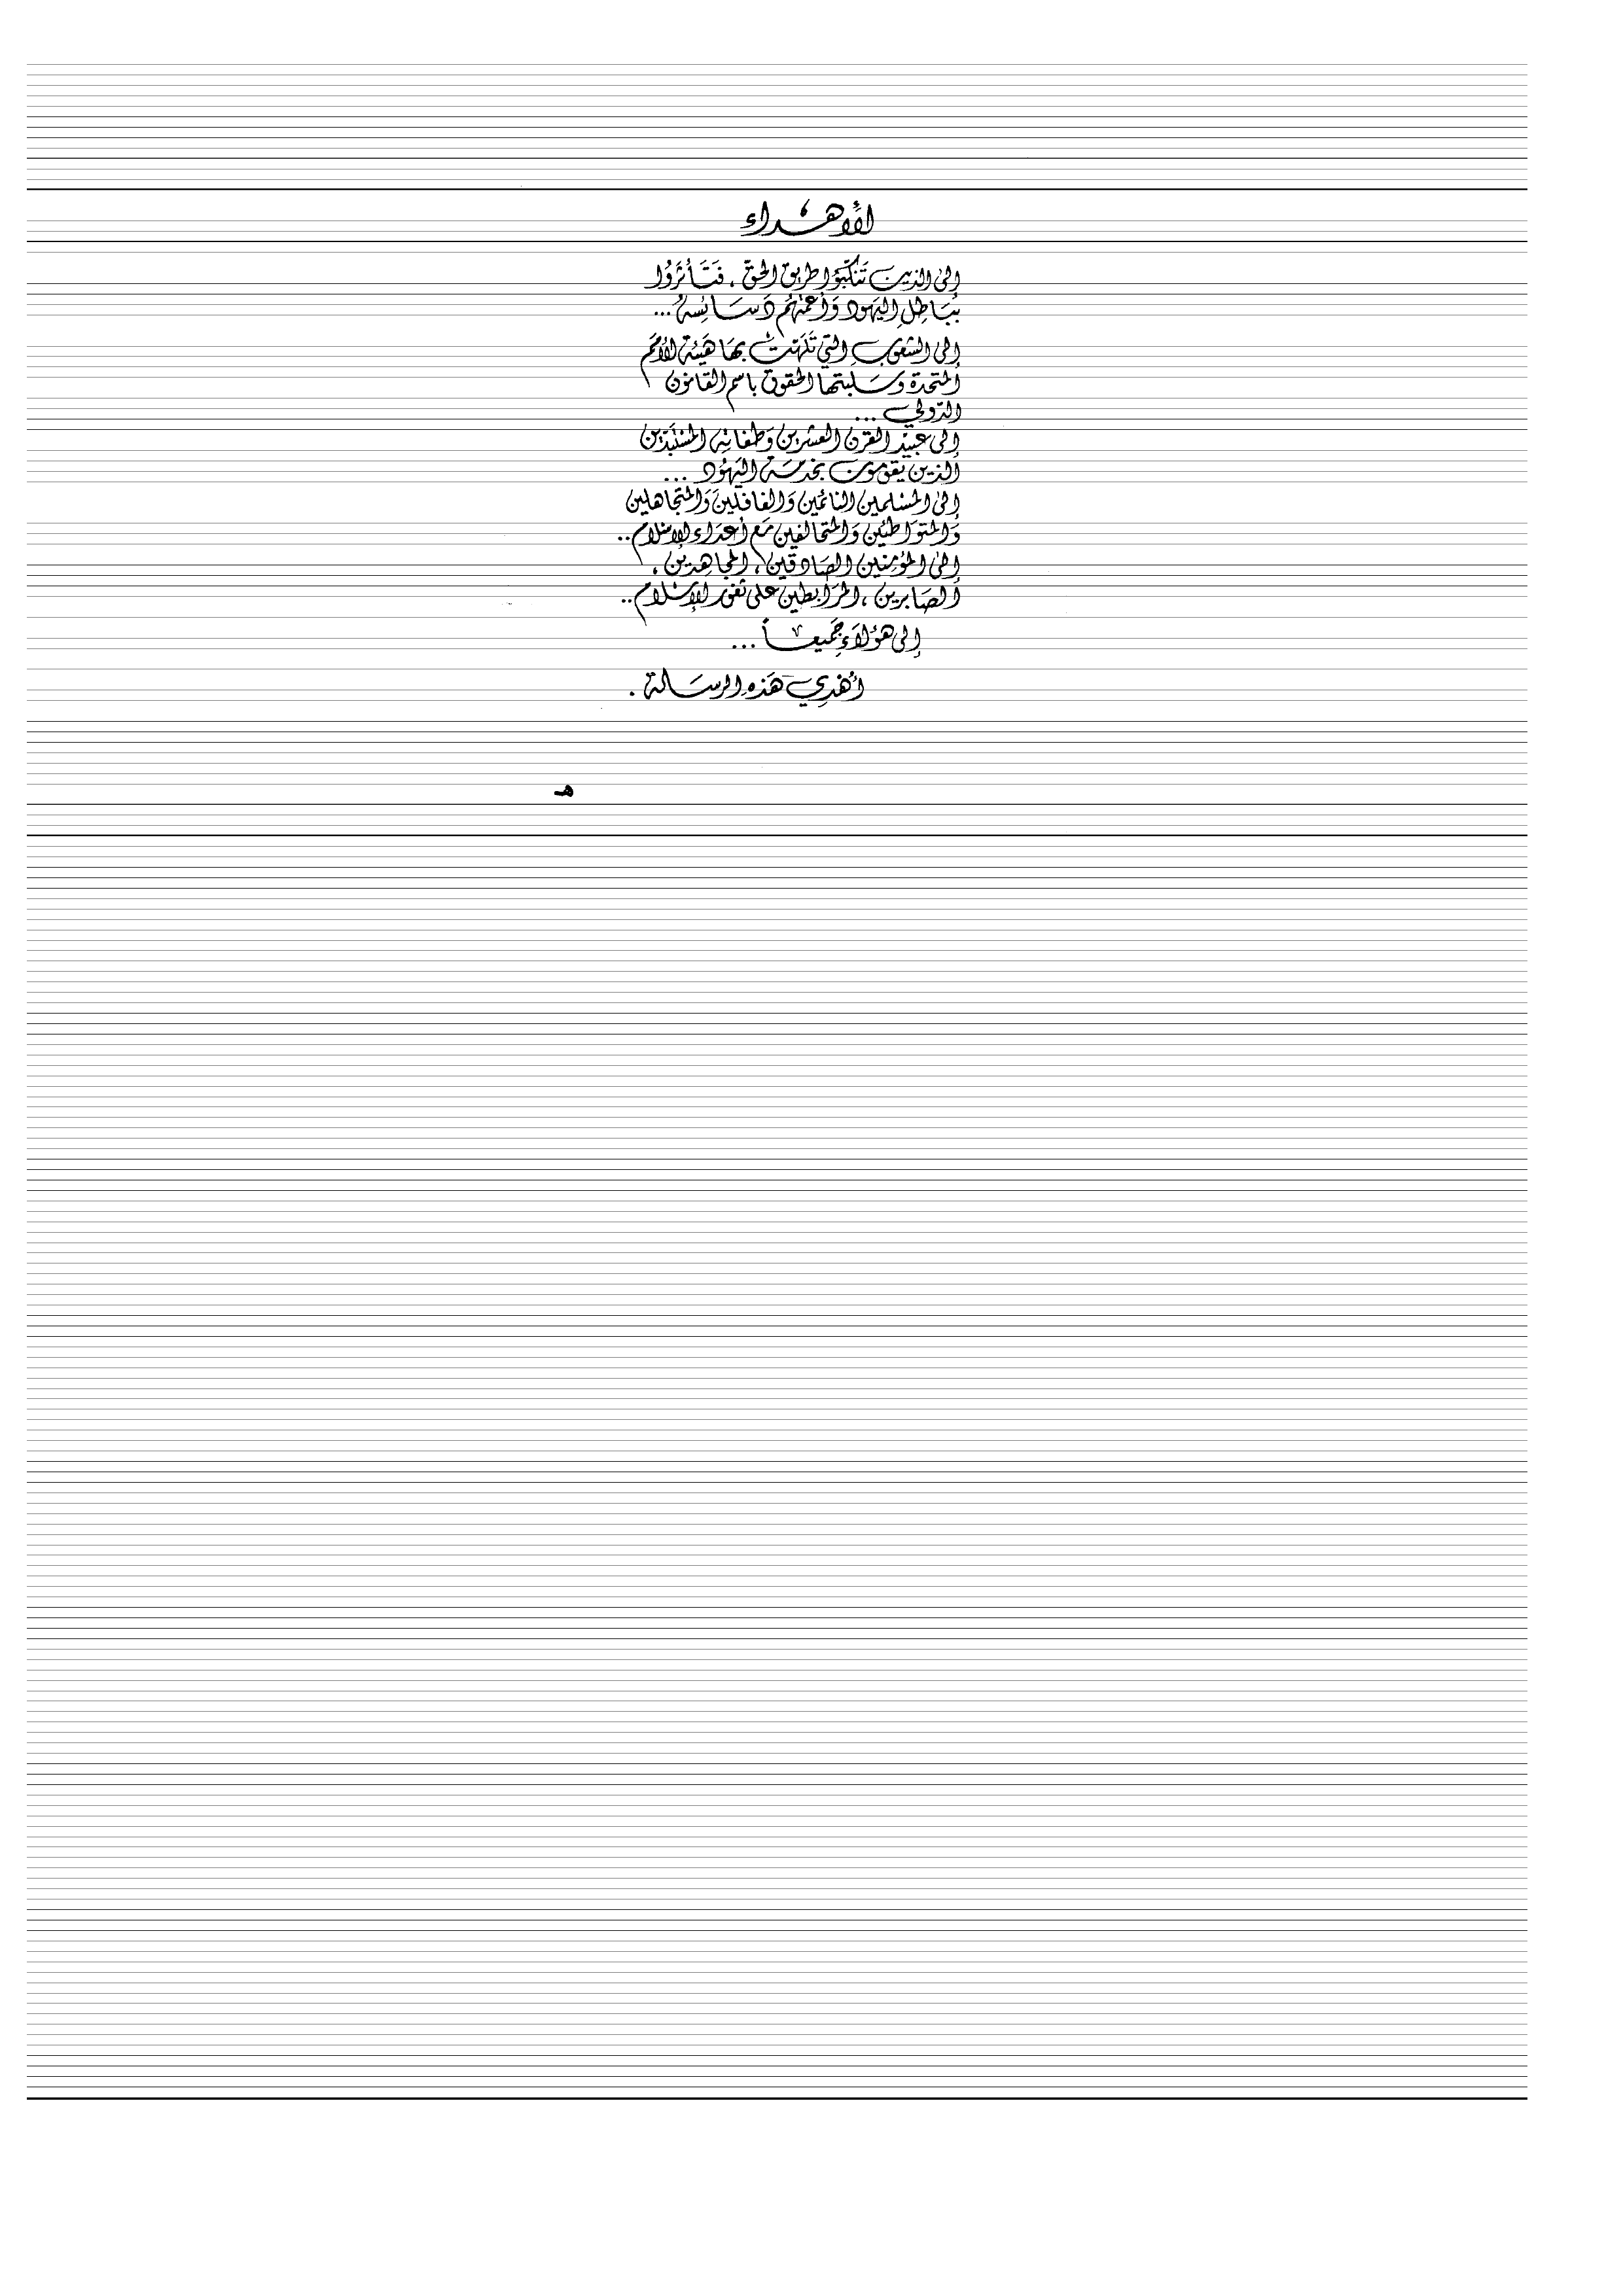 الأهداء
إلى الذين تَنكبّوا طريق الحق ، فَتَأثَرَوُا
بَبَاطِلِ اليهود وَأعمتهُم دَسَائِسهُ ...
إلى الشعوب التي تَلَهّتْ بهَا هَيئة الأُمَم
المتحدة وسَلبتها الحقوق باسم القانون
الدّولي ...
إلى عبيد القرن العشرين وَطغاته المسْتبَدّين
الذين يَقومون بخدمَة اليَهُود ...
إلى المسْلمين النائمين وَالغافلينَ وَالمتجاهلين
وَالمتوَاطئين وَالمتحالفين مَع أعدَاء الإسْلام ..
إلى المؤمِنين الصَادقين ، المجَاهِدين ،
الصَابرين ، المرَابطين على ثغور الإسْلام ..
إلى هؤلاَء جَميعاً ...
أُهْدِي هَذه الرسَالة .
هـ